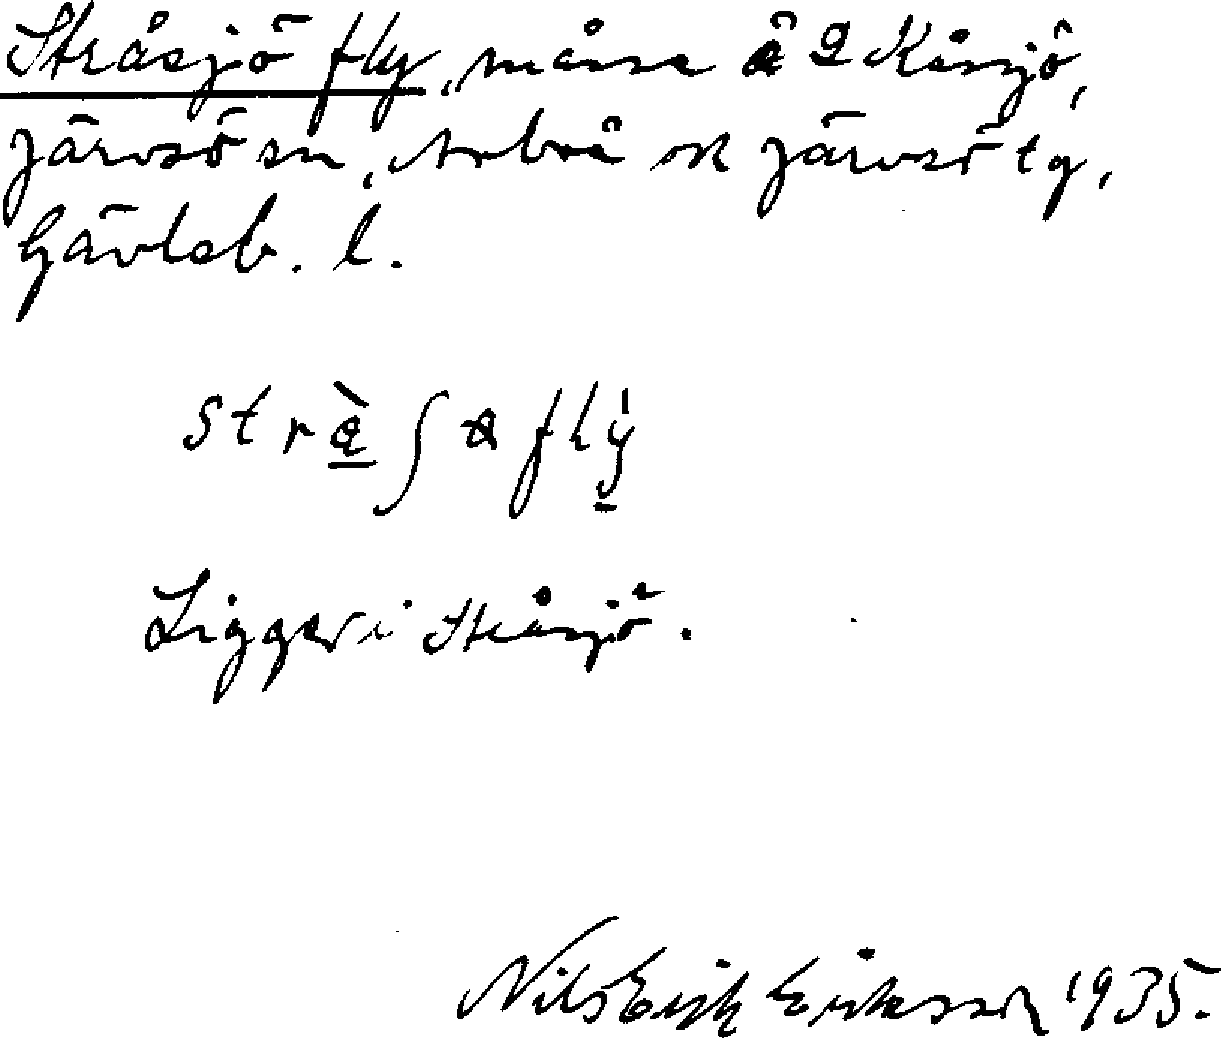 Stråsjö fly, mosse å 2 Kåsjö,
Järvsö sn, Arbrå ok Järvsö tg,
Gävleb. l.
strὰ̱ʃɑflý̱
Ligger i Stråsjö.
Nils Erik Eriksson 1935.